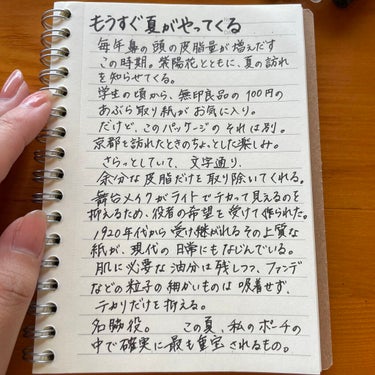 もうすぐ夏がやってくる
毎年鼻の頭の皮脂量が増えだす
この時期。紫陽花とともに、夏の訪れ
を知らせてくる。
学生の頃から、無印良品の100円の
あぶら取り紙がお気に入り。
だけど、このパッケージのそれは別。
京都を訪れたときのちょっとした楽しみ。
さらっとしていて、文字通り、
余分な皮脂だけを取り除いてくれる。
舞台メイクがライトでテカって見えるのを
抑えるため、役者の希望を受けて作られた。
1920年代から受け継がれるその上質な
紙が、現代の日常にもなじんでいる。
肌に必要な油分は残しつつ、ファンデ
などの粒子の細かいものは吸着せず、
テカりだけを抑える。
名脇役。 この夏、私のポーチの
中で確実に最も重宝されるもの。